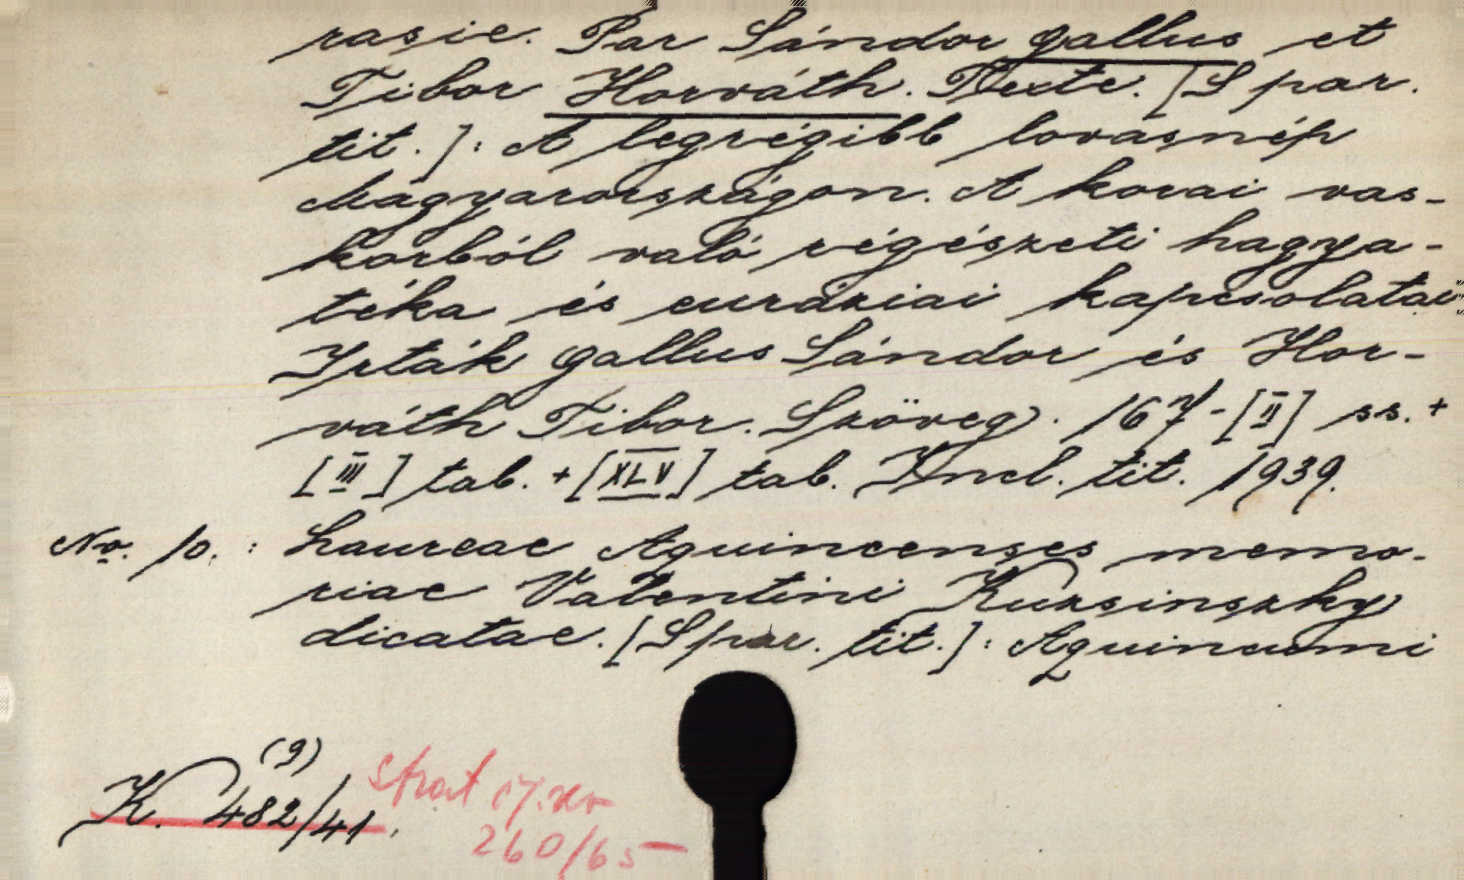 rasie. Par Sándor Gallus et
Tibor Horváth. Texte. [S par.
tit.]: A legrégibb lovasnép
Magyarországon. A korai vas-
korból való régészeti hagya-
téka és eurázsiai kapcsolatai
Irták Gallus Sándor és Hor-
váth Tibor. Szöveg. 167-[II] ss. +
[III] tab. + [XLV] tab. Incl. tit. 1939.
No. 10.: Laureae Aquincenses memo-
riae Valentini Kuzsinszky
dicatae. [S par. tit.]: Aquincumi
(9)
K. 482/41.
260/65